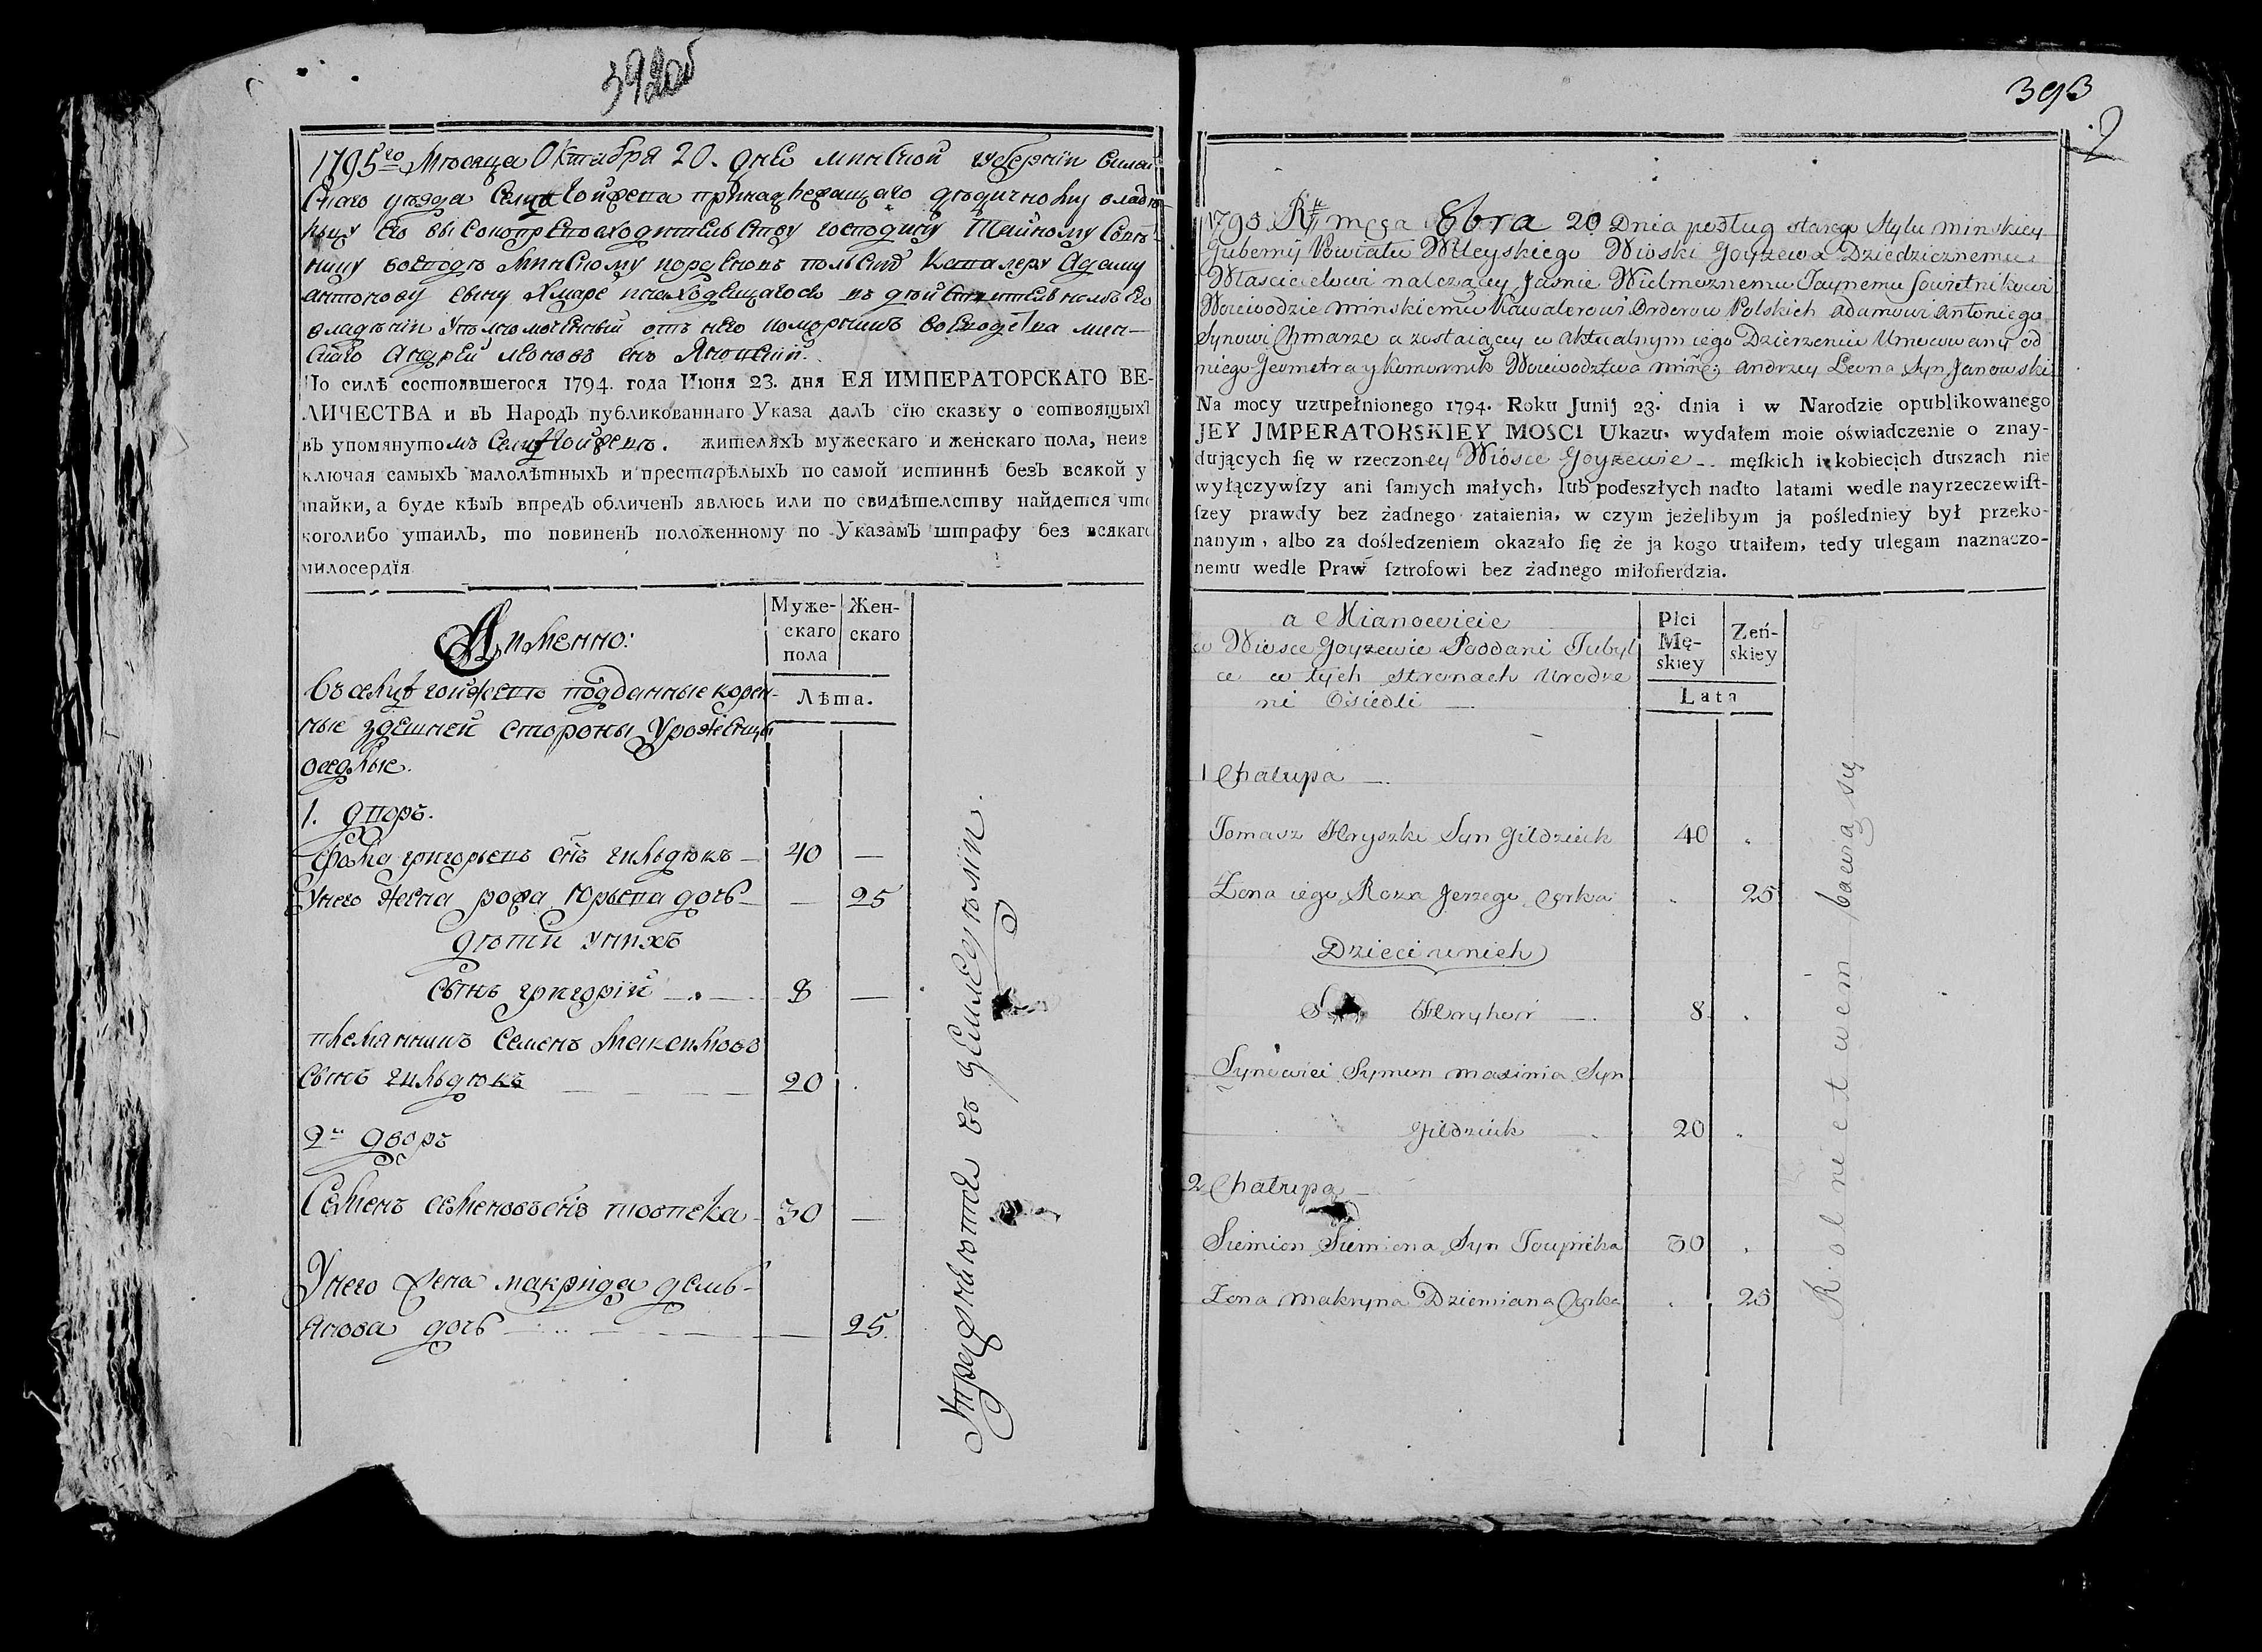 392об
1795го Мѣсяца Октября 20. дня минской губерніи вилей-
скаго уѣзда Сельца Гойжева принадлежащаго дѣдичному владѣ-
льцу Его высокопревосходительству господину Тайному Совѣт-
нику воеводѣ минскому орденовъ польскихъ Кавалеру Адаму
антонову сыну Хмаре инаходящагося въ действительномъ Его
владѣніи Уполномоченный отъ него коморникъ воеводства мин-
скаго Андрей леоновъ снъ Яновскій.
По силѣ состоявшегося 1794. года Июня 23. дня ЕЯ ИМПЕРАТОРСКАГО ВЕ-
ЛИЧЕСТВА и въ Народъ публикованнаго Указа далъ сїю сказку о сотвоящыхъ
въ упомянутомъ Сельце Гойжеве. жителяхъ мужескаго и женскаго пола, неиз
ключая самыхъ малолѣтныхъ и престарѣлыхъ по самой истиннѣ безъ всякой у
тайки, а буде кѣмъ впредъ обличенъ явлюсь или по свидѣтелству найдется что
коголибо утаилъ, то повиненъ положенному по Указамъ штрафу без всякаго
милосердїя
А именно:
Муже-скаго пола
Жен-скаго
Лѣта.
Въ сельцѣ гойжевѣ подданные корен-
ные здешней стороны Уроженцы
оседлые.
1. дворъ.
Фома григорьевъ снъ гильдюкъ — 40 —
Унего жена розa Юрьева дочь — — 25
дѣти унихъ
сынъ григорій — 8 —
племянникъ Семенъ Максимовъ
сынъ гильдюкъ 20 .
2й дворъ
Семенъ семеновъ снъ товпека 30 —
Унего жена макрида демь-
янова дочь — 25.
Упражняются въ земледѣліи.
393
2
1795 Rku męca 8bra 20 Dnia podług starego Stylu minskiey
Gubernij Powiatu Wileyskiego Wioski Goyzewa Dziedzicznemu
Włascicielowi nalezącey Jasnie Wielmoznemu Taynemu Sowietnikowi
Woiewodzie minskiemu Kawalerowi Orderow Polskich adamowi Antoniego
Synowi Chmarze a zostaiącey w Aktualnym iego Dzierzeniu Umocowany od
niego Jeometra y komornik Woiewodztwa mińs: andrzey Leona Syn Janowski
Na mocy uzupełnionego 1794. Roku Junij 23. dnia i w Narodzie opublikowanego
JEY JMPERATORSKIEY MOSCI Ukazu, wydałem moie oświadczenie o znay-
dujących ſię w rzeczoney Wiosce Goyzewie męſkich i kobiecich duszach nie
wyłączywſzy ani ſamych małych, lub podeszłych nadto latami wedle nayrzeczewiſt-
ſzey prawdy bez żadnego zataienia, w czym jeżelibym ja pośledniey był przeko-
nanym, albo za dośledzeniem okazało ſię że ja kogo utaiłem, tedy ulegam naznaczo-
nemu wedle Praw ſztrofowi bez żadnego miłoſierdzia.
a Mianowicie
Płci Mę-skiey
Zeń-skiey
Lata
w Wiosce Goyzewie Poddani Tubyl
ce w tych stronach Urodze
ni Osiedli —
1 Chałupa —
Tomasz Hryszki Syn Gildziuk 40 .
Zona iego Roza Jerzego Corka . 25
Dzieci u nich
Syn Hryhor — 8 .
Synowiec Symon maxima Syn
Gildziuk 20 .
2 Chałupa —
Siemion Siemiona Syn Toupieka 30 .
Zona makryna Dziemiana Corka . 25
Rolnietwem bawią się